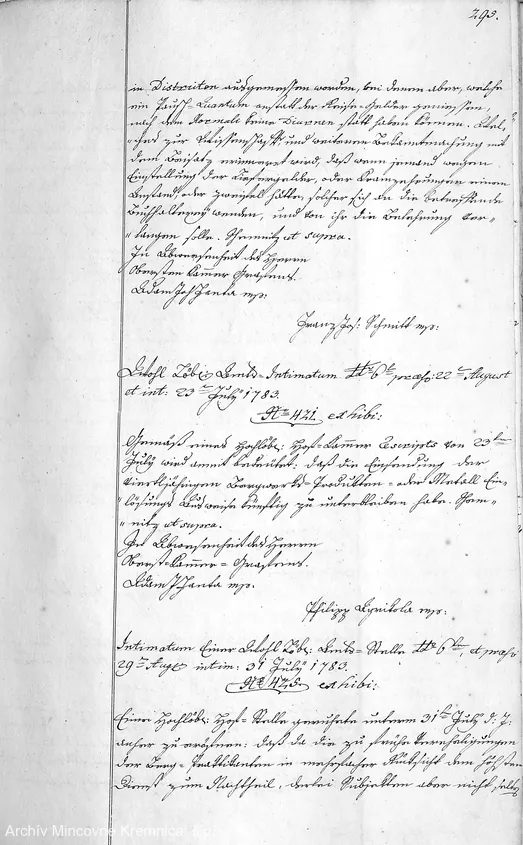 293.
in Districten ausgemessen worden, bei denen aber, welche
ein Pausch-Quantum anstatt der Reise-Gelder geniessen,
nach dem Normale keine Diurnen statt haben können.
zur Wissenschaft und weiteren Bekanntmachung mit
dem Beisatz erinnert wird, daß wenn jemand wegen
Einstellung der Liefergelder, oder einen
Anstand, oder Zweifel hätte, solcher sich an die betreffende
Buchhalterey wenden, und von ihr die Belehrung ver-
langen solle. Schemnitz et supra.
In Abwesenheit des Herrn
Obersten Kammer Grafens.
Adam Jos
Franz Jos: Schmitt mp:
Wohl Löbl: Amts-Intimatum dto 6te praes: 22te August
et int: 23te July 1783.
No 421. exhibi:
Gemäß eines Hochlöbl: Hof-Kammer Rescripts von 23ten
July wird anmit bedeutet: daß die Einsendung der
vierteljährigen Bergwerks-Produkten- oder Metall Ein-
lösungs Ausweise künftig zu unterbleiben habe. Schem-
nitz et supra.
In Abwesenheit des Herrn
Oberst-Kammer-Grafens.
Adam J
Philipp Agricola mp:
Intimatum Einer Wohl Löbl: Amts-Stelle dto 6te, et praes:
29te Aug: intim: 31 July 1783.
No 425. exhibi:
Eine Hochlöbl: Hof-Stelle geruhete unterm 31ten July d: J:
anher zu eröfnen: daß da die zu frühe Verehelichungen
der Berg-Praktikanten in mehrfacher Rücksicht dem höchsten
Dienst zum Nachtheil, derlei Subjekten aber nicht selten
Archív Mincovne Kremnica